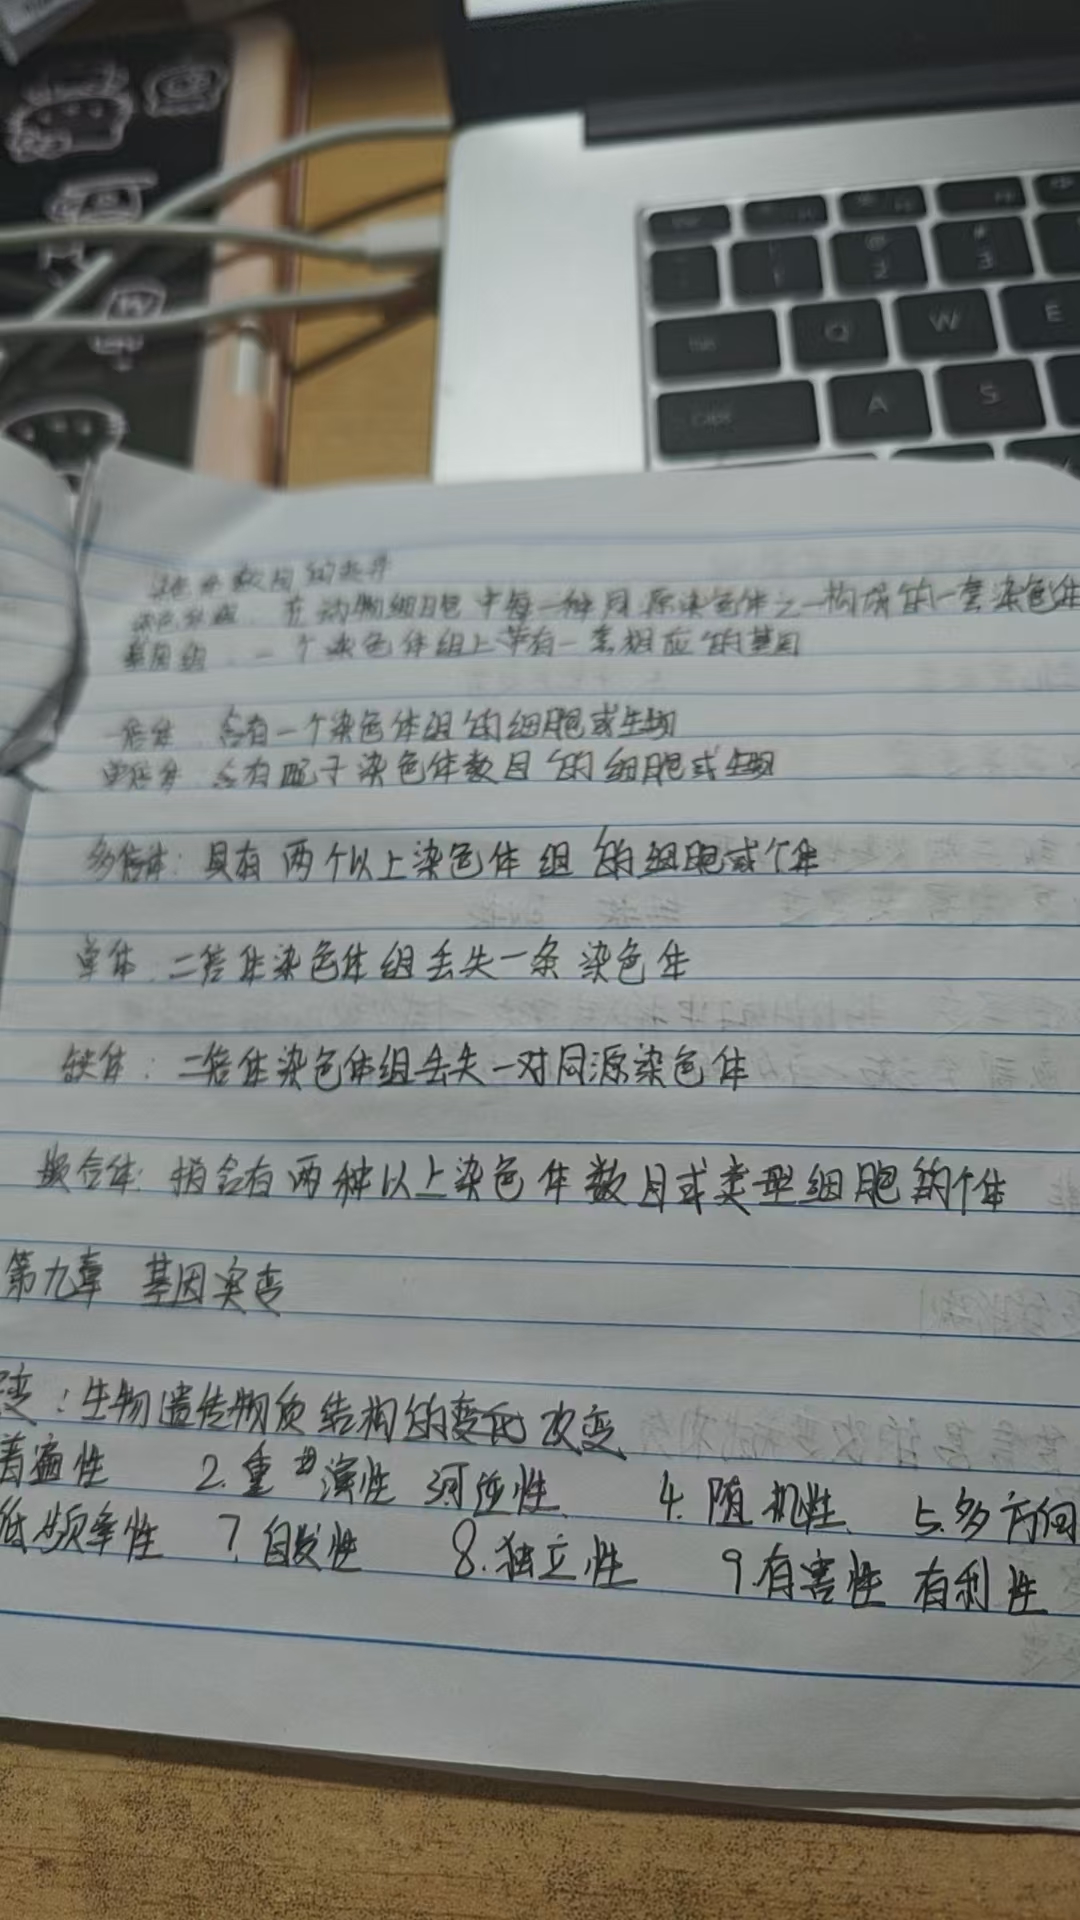 Q W E
A S
染色体数目的
在动物细胞中每一种同源染色体之一构成的一套染色体
基因组：一个染色体组上带有一套相应的基因
一倍体：含有一个染色体组的细胞或生物
单倍体：含有配子染色体数目的细胞或生物
多倍体：具有两个以上染色体组的细胞或个体
单体：二倍体染色体组丢失一条染色体
缺体：二倍体染色体组丢失一对同源染色体
嵌合体：指含有两种以上染色体数目或类型细胞的个体
第九章 基因突变
变：生物遗传物质结构的改变
普遍性 2.重演性 3.可逆性 4.随机性 5.多方向
低频率性 7.自发性 8.独立性 9.有害性 有利性